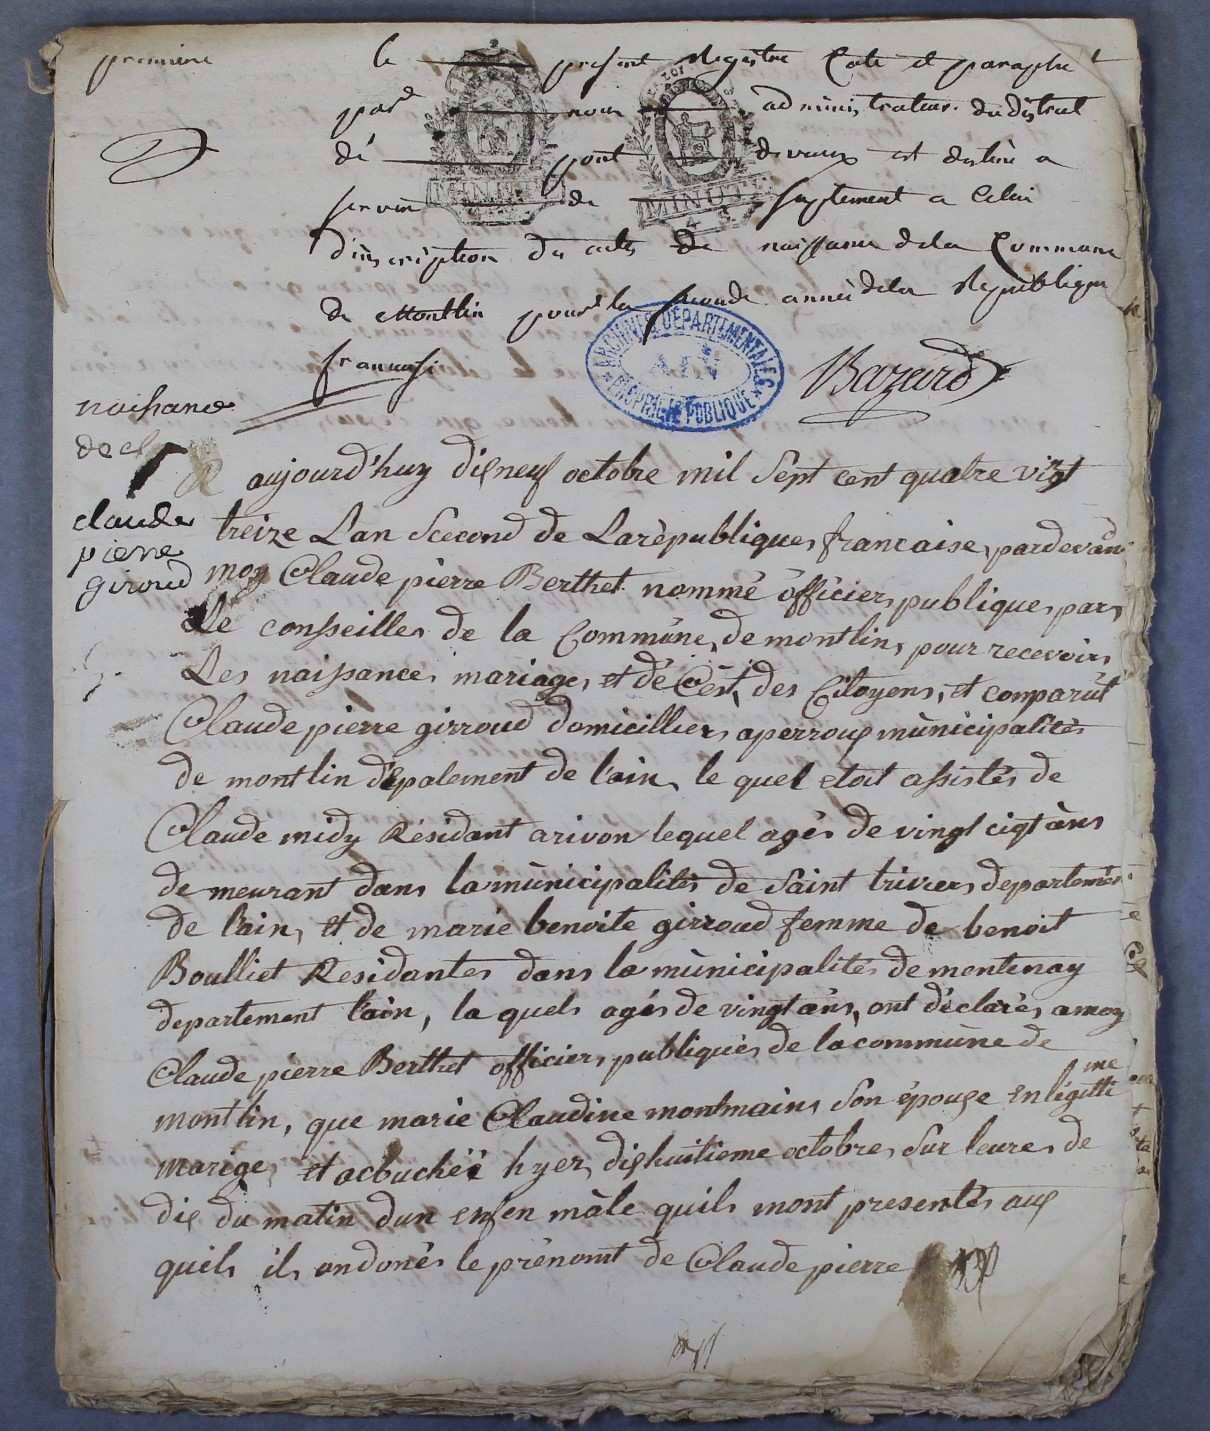 premiere
le present Registre Coté et paraphé
par nous administrateur du district
de pont devaux est destiné a
servir de suplement a Celui
d'inscription des actes de naissance dela Commune
de Montlin pour la seconde année dela Republique
francaise
Bazard
ARCHIVES DEPARTEMENTALES
AIN
PROPRIETE PUBLIQUE
MINUTE
MINUTE
naissance
de
claude
pierre
giroud
aujourd'huy dixneuf octobre mil sept cent quatre vingt
treize L'an Scecond de Larépublique francaise, pardevant
moy Claude pierre Berthet nommé officier publique par
Le consseille de la Commune de montlin pour recevoir
Les naissance mariage et décèst, des Citoyens, et comparût
Claude pierre girroud domicillier aperroux municipalités
de montlin dépalement de l'ain, le quel etoit assistés de
Claude midy Résidant arivon lequel agés de vingt ciqt àns
de meurant dans la municipalités de Saint trivier departemen
de l'ain, et de marie benoite girroud femme de benoit
Boulliet Residantes dans la municipalités de montenay
departement l'ain, la quels agés de vingt àns, ont déclarés amoy
Claude pierre Berthet officier publiques de la commune de
montlin, que marie Claudine montmain son épouse en légitti
me
marige, et acbuchéé hyer, dixhuitieme octobre, Sur leure de
dix du matin dun enfen màle quils mont presentés aux
quils ils ondonés le prénomt de Claude pierre